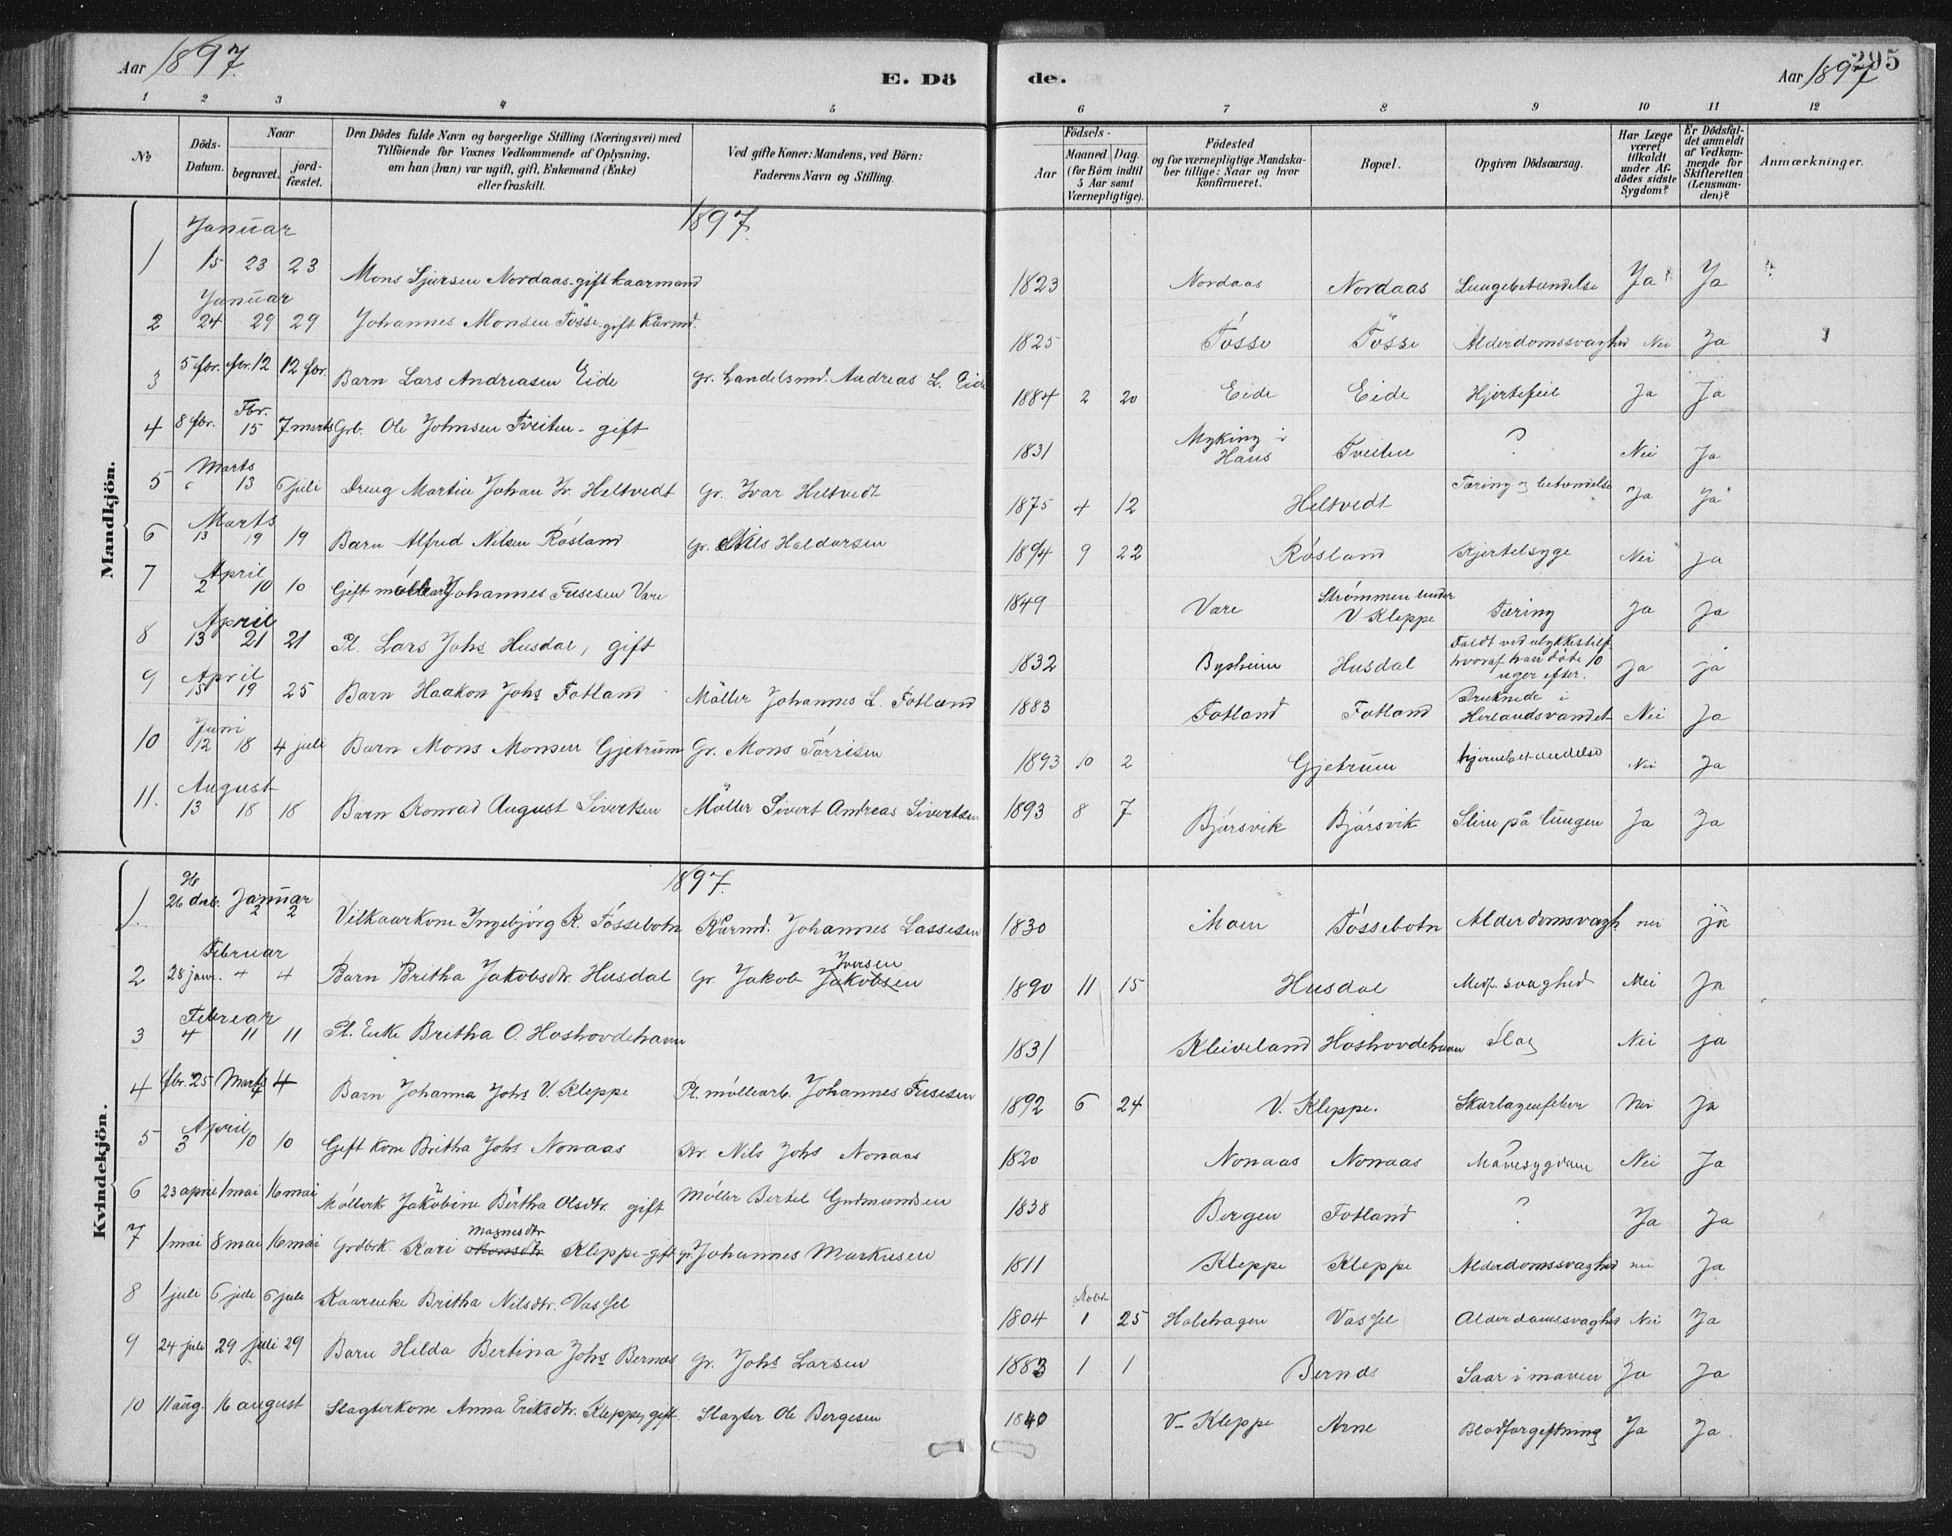 Aar 1897.
E. Dö
de.
Aar 1897
295
1 2 3 4 5
6 7 8 9 10 11 12
№
Döds-
Datum.
Naar
begravet.
jord-
fæstet.
Den Dödes fulde Navn og borgerlige Stilling (Næringsvei) med
Tilföiende for Voxnes Vedkommende af Oplysning,
om han (hun) var ugift, gift, Enkemand (Enke)
eller fraskilt.
Ved gifte Koner: Mandens, ved Börn:
Faderens Navn og Stilling.
Födsels-
Aar
Maaned. Dag.
(for Börn indtil
5 Aar samt
Værnepligtige).
Födested
og for værnepligtige Mandska-
ber tillige: Naar og hvor
konfirmeret.
Bopæl.
Opgiven Dödsaarsag.
Har Læge
været
tilkaldt
under Af-
dödes sidste
Sygdom?
Er Dödsfal-
det anmeldt
af Vedkom-
mende for
Skifteretten
(Lensman-
den)?
Anmærkninger.
Mandkjön.
1897.
Januar
1 15 23 23 Mons Sjursen Nordaas-gift kaarmand 1823 Nordaas Nordaas Lungebetændelse Ja Ja
Januar
2 24 29 29 Johannes Monsen Tösse-gift Kårmd. 1825 Tösse Tösse Alderdomssvaghed Nei Ja
3 5 fbr. fbr. 12 12 fbr. Barn Lars Andreasen Eide gr. Landelsmd. Andreas L. Eide 1884 2 20 Eide Eide Hjertefeil Ja Ja
Fbr.
4 8 fbr. 15 7 marts Grb. Ole Johnsen Tveiten - gift 1831 Myking i Haus Tveiten ? Nei Ja
Marts
5 6 13 6 juli Dreng Martin Johan Iv. Heltvedt Gr. Ivar Heltvedt 1875 4 12 Heltvedt Tæring og betændelse Ja Ja
Marts
6 13 19 19 Barn Alfred Nilsen Rósland Gr. Nils Haldorsen 1894 9 22 Rósland Kjertelsyge Nei Ja
April
7 2 10 10 Gift möllearb Johannes Fusesen Vare 1849 Vare Strømmen under V Kleppe Tæring Ja Ja
April
8 13 21 21 Pl. Lars Johs Husdal, gift 1832 Husdal Faldt ved ulykkestilf. hvoraf han døde 10 uger efter. Ja ja
April
9 15 19 25 Barn Haakon Johs Fotland Möller Johannes L. Fotland 1883 Fotland Fotland Druknede i Herlandsvandet Nei Ja
Juni
10 12 18 4 juli Barn Mons Monsen Gjetrum Gr. Mons Tórrisen 1893 10 2 Gjetrum hjernebetændelse Nei Ja
August
11. 13 18 18 Barn Konrad August Sivertsen Möller Sivert Andreas Sivertsen 1893 8 7 Bjórsvik Bjórsvik Slim på lungen Ja Ja
Kvindekjön.
1897.
96
1. 26 decb. Januar 2 2 Vilkaarkone Ingebjórg K. Tóssebotn Kårmd. Johannes Lassesen 1830 Moen Tóssebotn Alderdomsvagh nei ja
Februar
2 28 janr. 4 4 Barn Britha Jakobsdtr. Husdal Gr. Jakob Jakobsen Iversen 1890 11 15 Husdal Medf. svaghed Nei Ja
Februar
3 4 11 11 Pl. Enke Britha O. Hoshovdehavn 1831 Kleiveland Hoshovdehavn Slag Nei ja
4 fbr. 25 Marts 4 4 Barn Johanna Johs V. Kleppe Pl. möllearb. Johannes Fusesen 1892 6 24 V. Kleppe. Skarlagensfeber Nei Ja
April
5 3 10 10 Gift kone Britha Johs Nonaas Gr. Nils Johs Nonaas 1820 Nonaas Nonaas Mavesygdom Nei Ja
6 23 april 1 mai 16 mai Möllerk Jakobine Bertha Olsdtr. gift Møller Bertel Gudmundsen 1838 Bergen Fotland ? Ja Ja
7 1 mai 8 mai 16 mai Grdbrk. Kari Monsdtr Magnesdtr Kleppe-gift gr. Johannes Markusen 1811 Kleppe Kleppe Alderdomssvaghed nei Ja
8 1 juli 6 juli 6 juli Kaarenke Britha Nilsdtr. Vassel 1804 1 25 Holehagen Vassel Alderdomssvaghed Nei Ja
9 24 juli 29 juli 29 Barn Hilda Bertina Johs Bernæs Gr. Johs Larsen 1883 1 1 Bernæs Saar i maven Ja Ja
10 11 aug. 16 august Slagterkone Anna Eriksdtr. Kleppe, gift. Slagter Ole Bergesen 1840 V- Kleppe Arne Blodforgiftning Ja Ja.